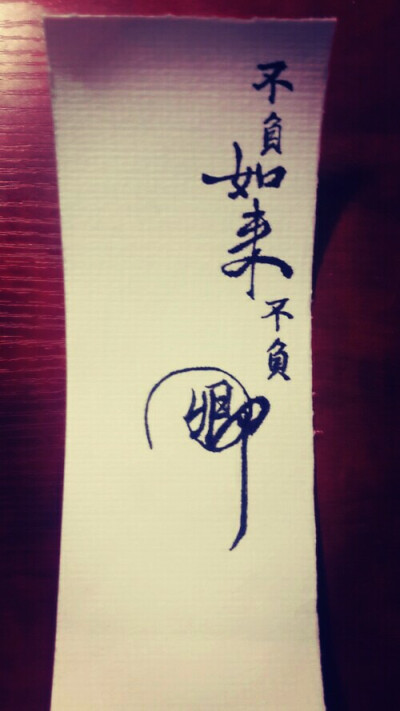 不負如来不負卿